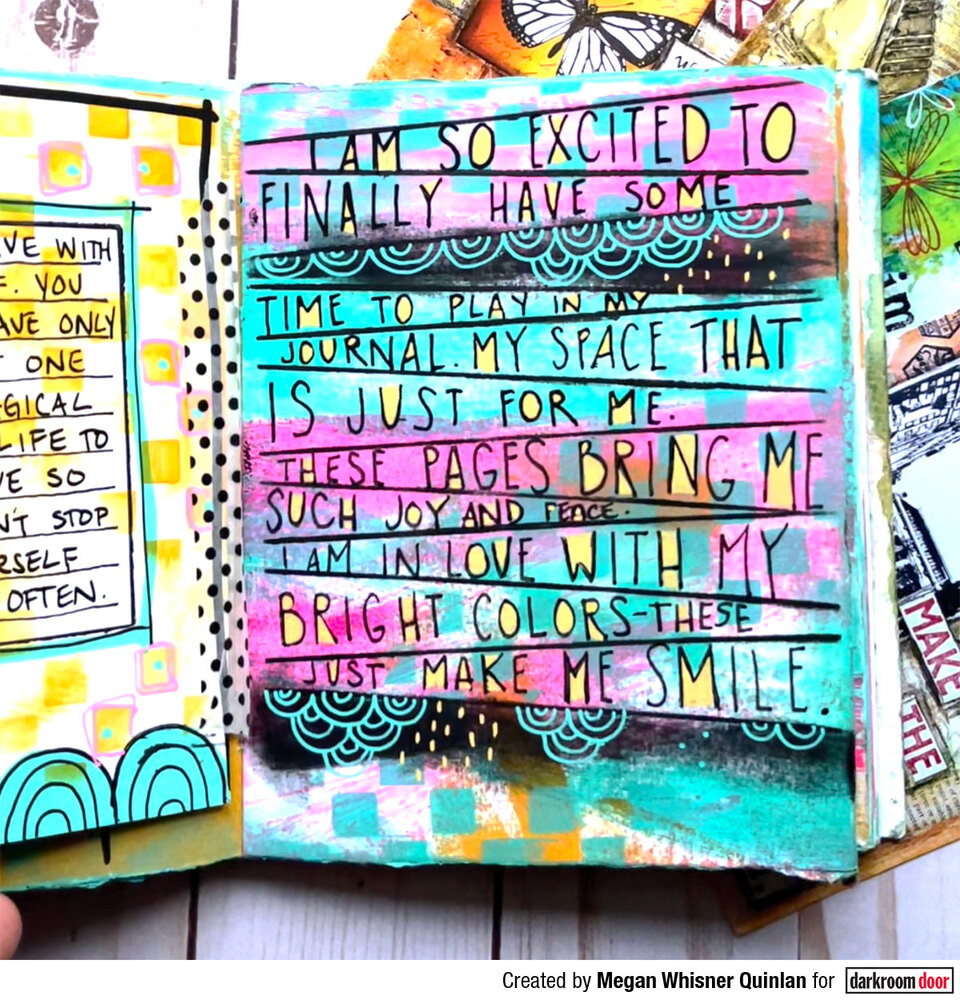 VE WITH
F. YOU
AVE ONLY
ONE
GICAL
LIFE TO
VE SO
N'T STOP
RSELF
OFTEN.
I AM SO EXCITED TO
FINALLY HAVE SOME
TIME TO PLAY IN MY
JOURNAL. MY SPACE THAT
IS JUST FOR ME.
THESE PAGES BRING ME
SUCH JOY AND PEACE.
I AM IN LOVE WITH MY
BRIGHT COLORS-THESE
JUST MAKE ME SMILE.
MAKE
THE
Created by Megan Whisner Quinlan for darkroom door